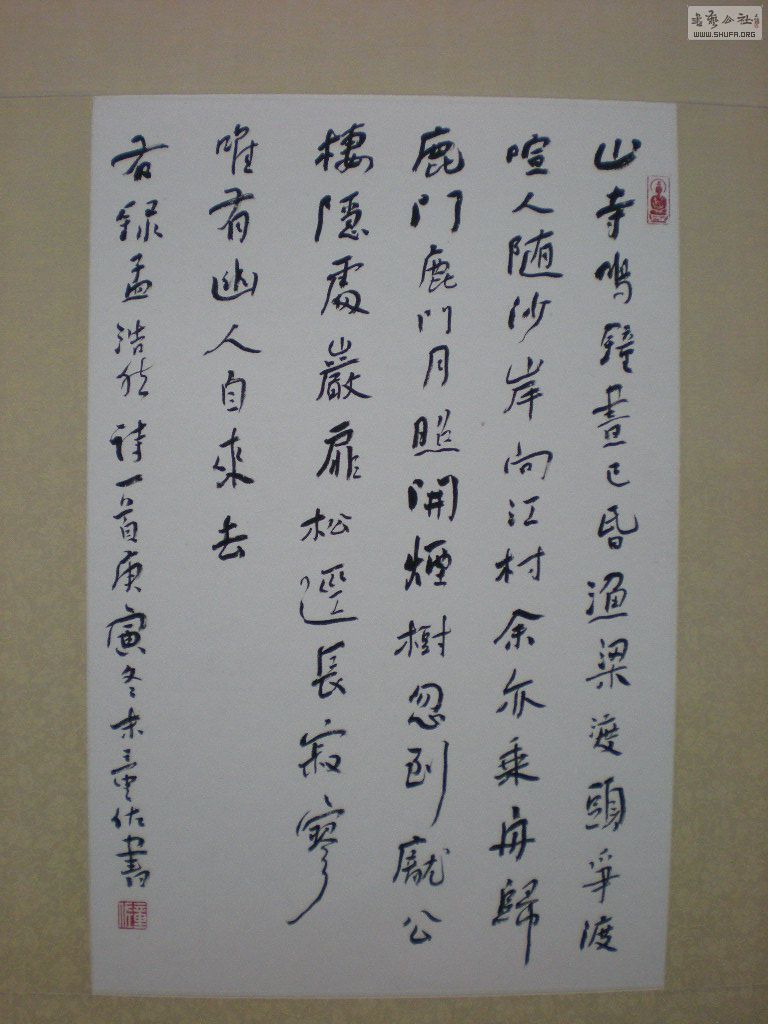 山寺鳴鐘晝已昏漁梁渡頭爭渡
喧人随沙岸向江村余亦乘舟歸
鹿門鹿門月照開煙樹忽到龐公
棲隱處巖扉松逕長寂寥
唯有幽人自來去
右録孟浩然詩一首庚寅冬末童佑書
書藝公社
WWW.SHUFA.ORG